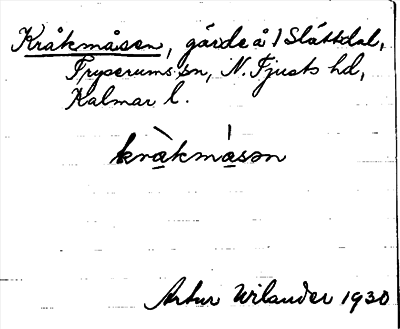 Kråkmåsen, gärde å 1 Slättdal,
Tryserums sn, N. Tjusts hd,
Kalmar l.
krà̱kmá̱sən
Artur Wilander 1930